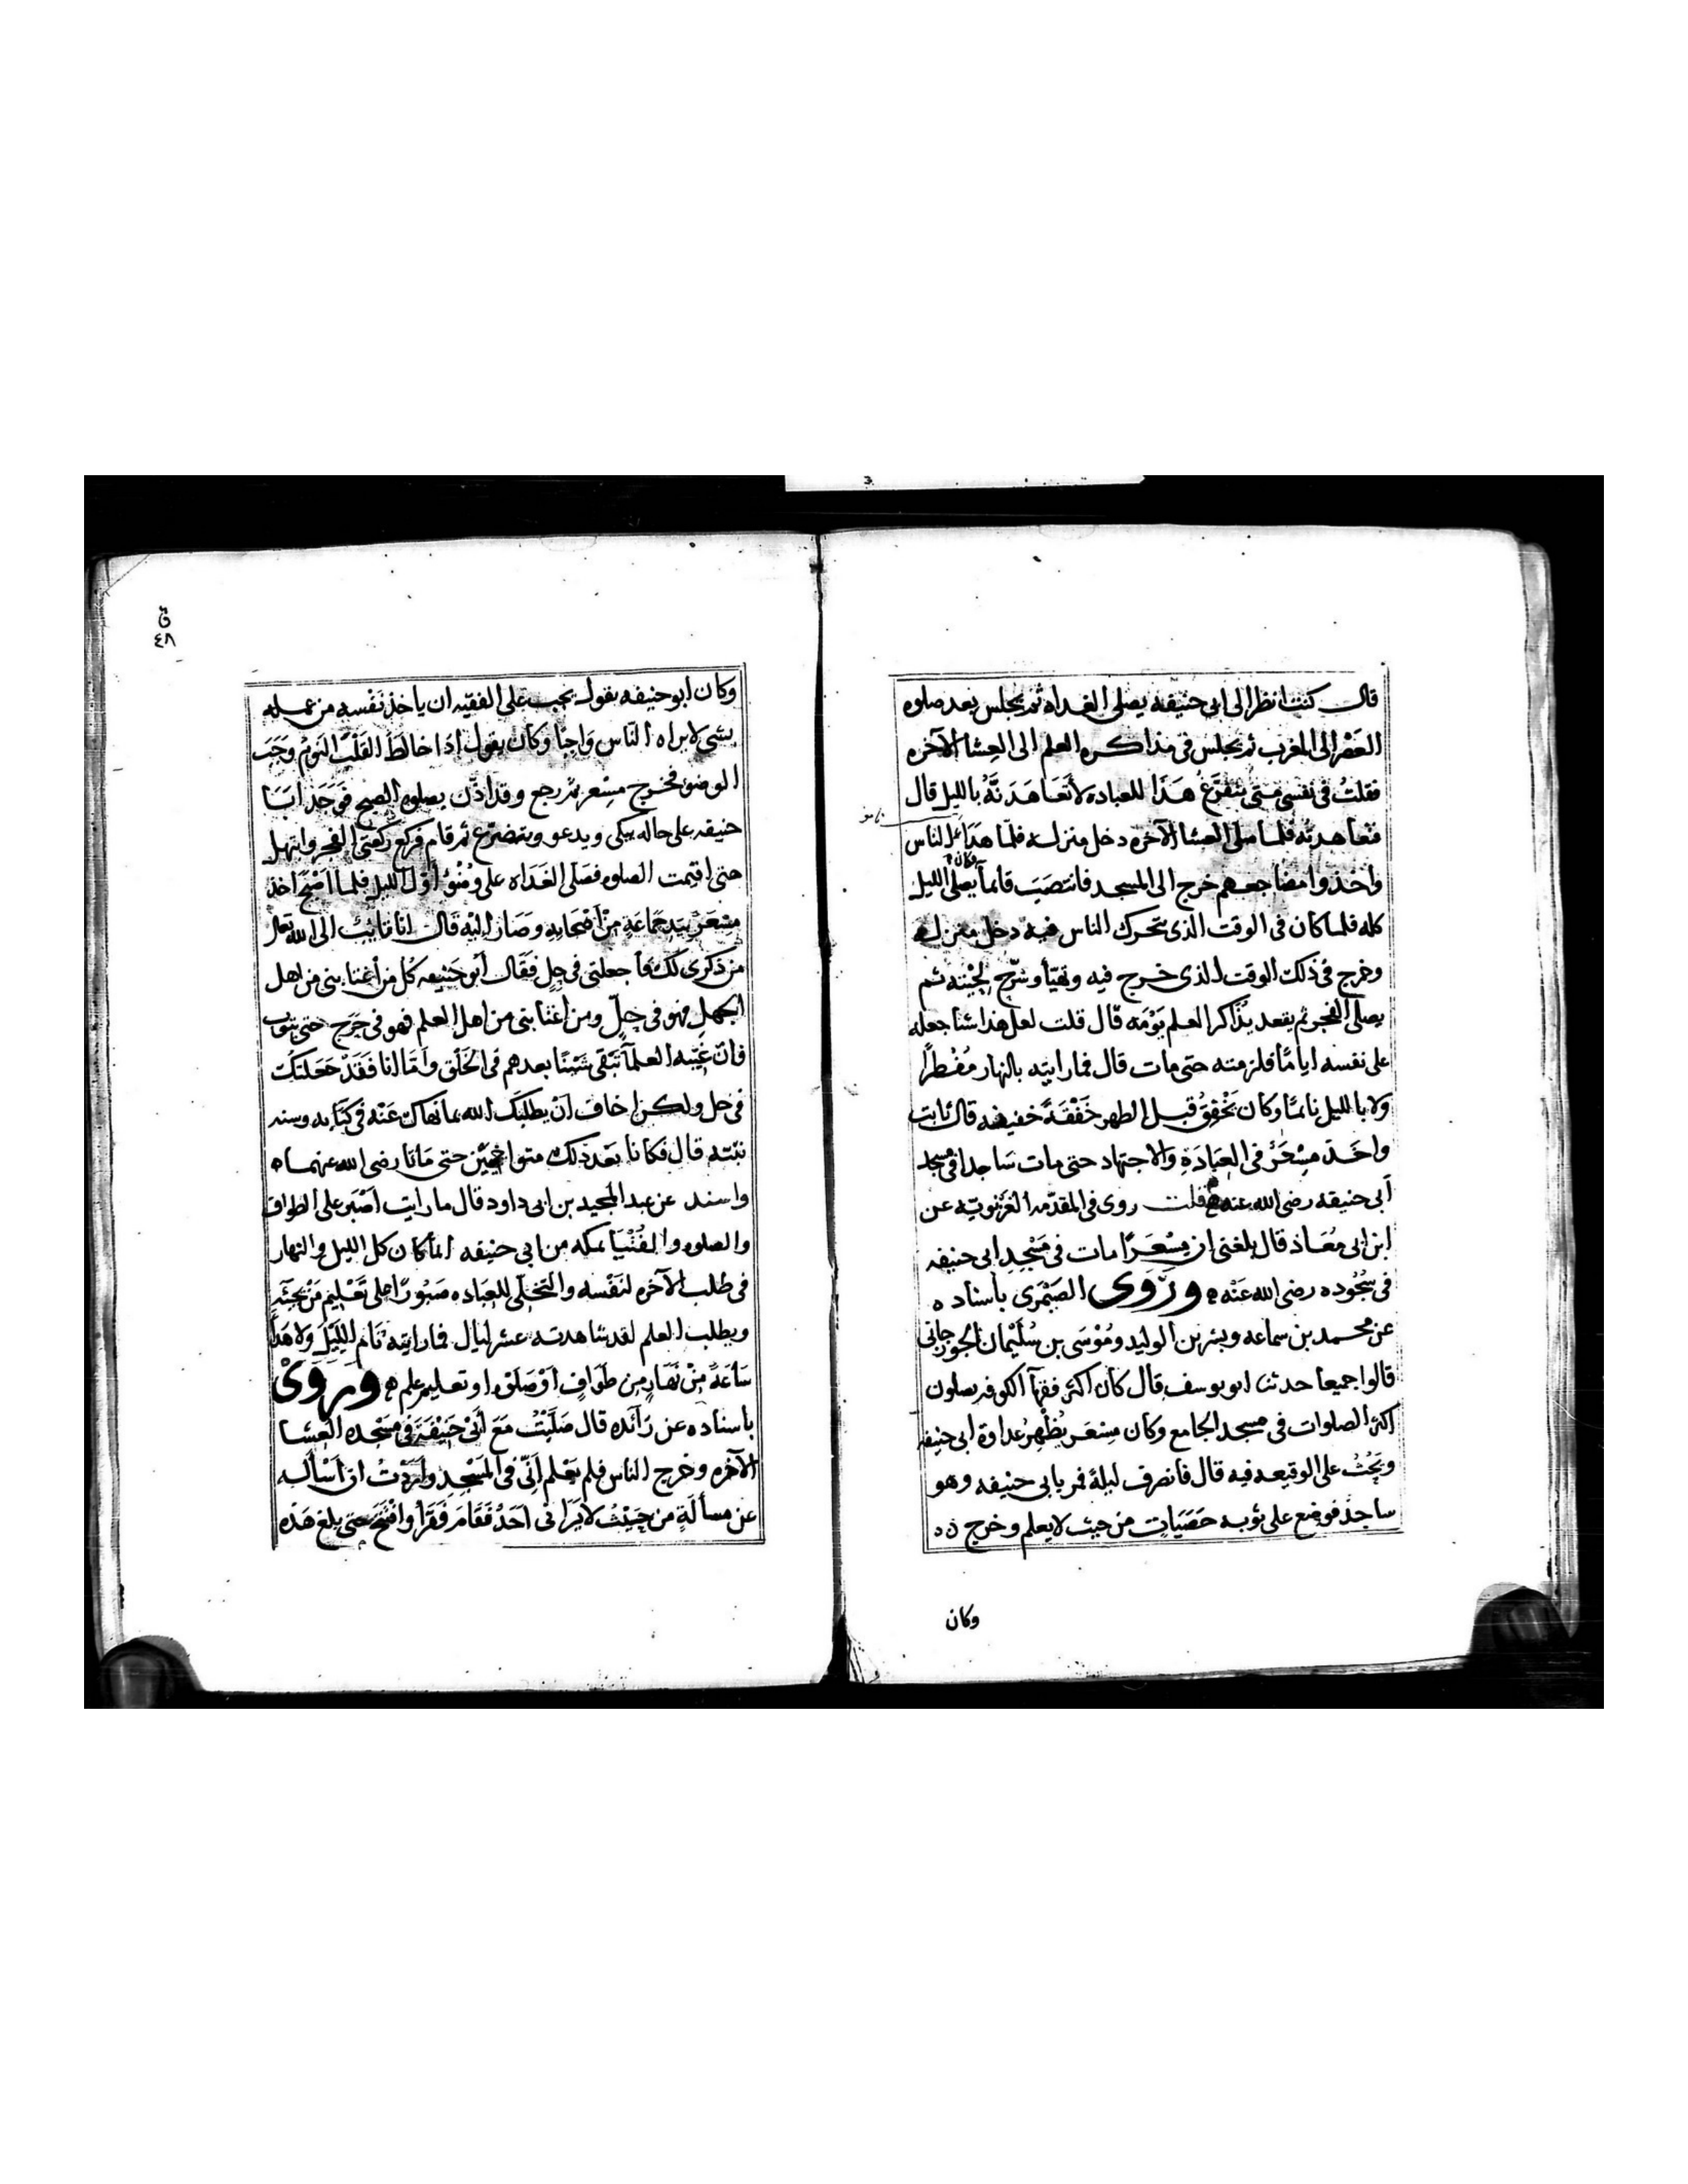 قال كنت انظر الى ابى حنيفه يصلى الغداه ثم يجلس بعد صلوه
العصر الى المغرب ثم يجلس فى مذاكره العلم الى العشا الآخره
فقلت فى نفسى متى يتفرغ هذا للعبادة لأتعاهدنّه بالليل قال
فتعاهدته فلما صلى العشا الآخره دخل منزله فلما هدا الناس
واخذوا مضاجعهم خرج الى المسجد فانتصب قايما وكان يصلى الليل
كله فلما كان فى الوقت الذى تحرك الناس فيه دخل منزله
وخرج فى ذلك الوقت الذى خرج فيه وتهيّأ وسرّح لحيته ثم
يصلى الفجر ثم يقعد يذاكر العلم يومه قال قلت لعل هذا شئا جعله
على نفسه اياما فلزمته حتى مات قال فما رايته بالنهار مفطرًا
ولا بالليل نائمًا وكان يخفق قبل الظهر خفقة خفيفه قال ثابت
واخذ مسعر فى العبادة والاجتهاد حتى مات ساجدا فى مسجد
ابى حنيفه رضى الله عنه قلت روى فى المقدمه الغزنويّه عن
ابن ابى معاذ قال بلغنى ان مسعرًا مات فى مسجد ابى حنيفه
فى سجوده رضى الله عنه وروى الصيمرى باسناده
عن محمد بن سماعه وبشر بن الوليد وموسى بن سليمان الجوزجانى
قالوا جميعا حدثنا ابو يوسف قال كان اكثر فقهآ الكوفه يصلون
اكثر الصلوات فى مسجد الجامع وكان مسعر يظهر عداوة ابى حنيفه
ويحث على الوقيعه فيه قال فانصرف ليلة فمر بابى حنيفه وهو
ساجد فوضع على ثوبه حصيات من حيث لا يعلم وخرج
وكان
٤٨
وكان ابو حنيفه يقول يجب على الفقيه ان ياخذ نفسه من عمله
بشى لا يراه الناس واجبا وكان يقول اذا خالط القلب النوم وجب
الوضوء فخرج مسعر ثم رجع وقد اذن بصلوه الصبح فوجد ابا
حنيفه على حاله يبكى ويدعو ويتضرع ثم قام فركع ركعتى الفجر وابتهل
حتى اقيمت الصلوه فصلى الغداه على وضوء أول الليل فلما اصبح اخذ
مسعر بيد جماعة من اصحابه وصار اليه قال انا تايب الى الله تعالى
من ذكرى لك فاجعلنى فى حل فقال أبو حنيفه كل من أغتابنى من اهل
الجهل فهو فى حلّ ومن اغتابنى من اهل العلم فهو فى حرج حتى يتوب
فان غيبه العلمآ تبقى شيئًا بعدهم فى الخلق وامّا انا فقد جعلتك
فى حل ولكن اخاف ان يطلبك الله بما نهاك عنه فى كتابه وسنه
نبيّه قال فكانا بعد ذلك متواخيين حتى ماتا رضى الله عنهما
واسند عن عبد المجيد بن ابى داود قال ما رايت اصبر على الطواف
والصلوه والفتيا بمكه من ابى حنيفه انما كان كل الليل والنهار
فى طلب الآخره لنفسه والتخلى للعباده صبورًا على تعليم من يجئه
ويطلب العلم لقد شاهدته عشر ليال فما رايته نام الليل ولا هدأ
ساعة من نهار من طواف أو صلوة او تعليم علم وروى
باسناده عن زائده قال صليت مع ابى حنيفة فى مسجده العشا
الآخره وخرج الناس فلم يعلم انّى فى المسجد واردت ان اسأله
عن مسألة من حيث لا يرانى احد فقام فقرأ وافتتح حتى بلغ هذه